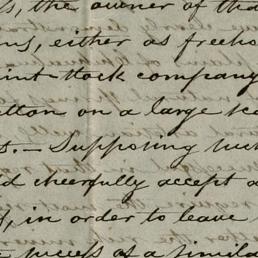 s, the owner of tha
ns, either as freeho
oint-stock company
otton on a large sca
t. — Supposing such
d cheerfully accept a
d, in order to leave
success of a simila